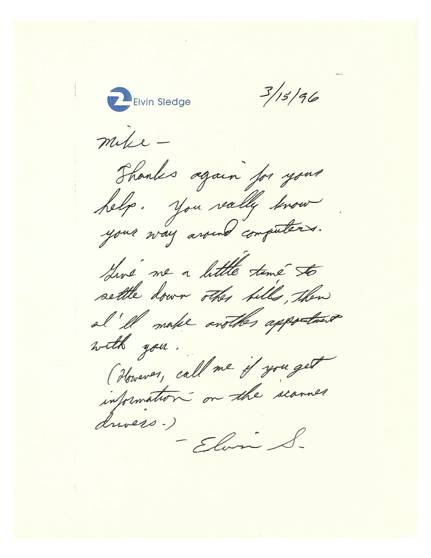 Elvin Sledge
3/15/96
Mike —
Thanks again for your
help. You really know
your way around computers.
Give me a little time to
settle down other bills, then
I'll make another appointment
with you.
(However, call me if you get
information on the scanner
drivers.)
- Elvin S.